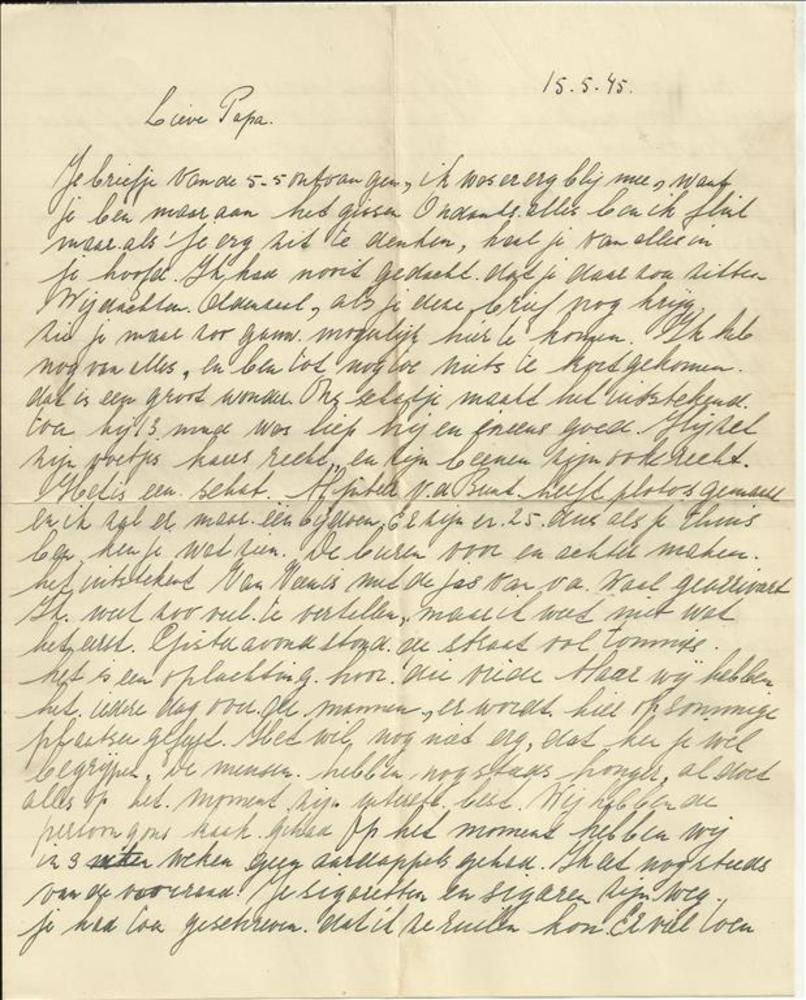 15.5.45.
Lieve Papa.
Je briefje van de 5-5 ontvangen, ik was er erg blij mee, want
je ben maar aan het gissen Ondanks alles ben ik flink
maar als je erg zit te denken, haal je van alles in
je hoofd. Ik had nooit gedacht dat je daar zou zitten
Wij dachten Oldenzaal, als je deze brief nog krijg
zie je maar zoo gauw mogelijk hier te komen. Ik heb
nog van alles, en ben tot nog toe niets te kort gekomen.
dat is een groot wonder. Ons schatje maakt het uitstekend.
toen hij 13 mnd was liep hij en ineens goed. Hij zet
zijn voetjes kaars recht, en zijn beenen zijn ook recht.
Het is een schat. v.d. heeft photo's gemaakt
en ik zal er maar één bijdoen, Er zijn er 25. dus als je thuis
ben, ken je wat zien. De buren voor en achter maken.
het uitstekend Van met de jas van v.a. Waal gearriveert
Ik weet zoo veel te vertellen, maar ik weet niet wat
het eerst. Gisteravond stond de straat vol Tommies.
het is een opluchting hoor die vrede Maar wij hebben
het iedere dag over de mannen, er wordt hier op sommige
plaatsen gefuift. Het wil nog niet erg, dat ken je wel
begrijpen, De mensen hebben nog steeds honger, al doet
alles op het moment zijn uiterste best. Wij hebben de
persoon gehad Op het moment hebben wij
in 3 weken geen aardappels gehad. Ik eet nog steeds
van de voorraad. Je sigaretten en sigaren zijn weg.
je had toen geschreven dat ik ze ruilen kon. Er viel toen